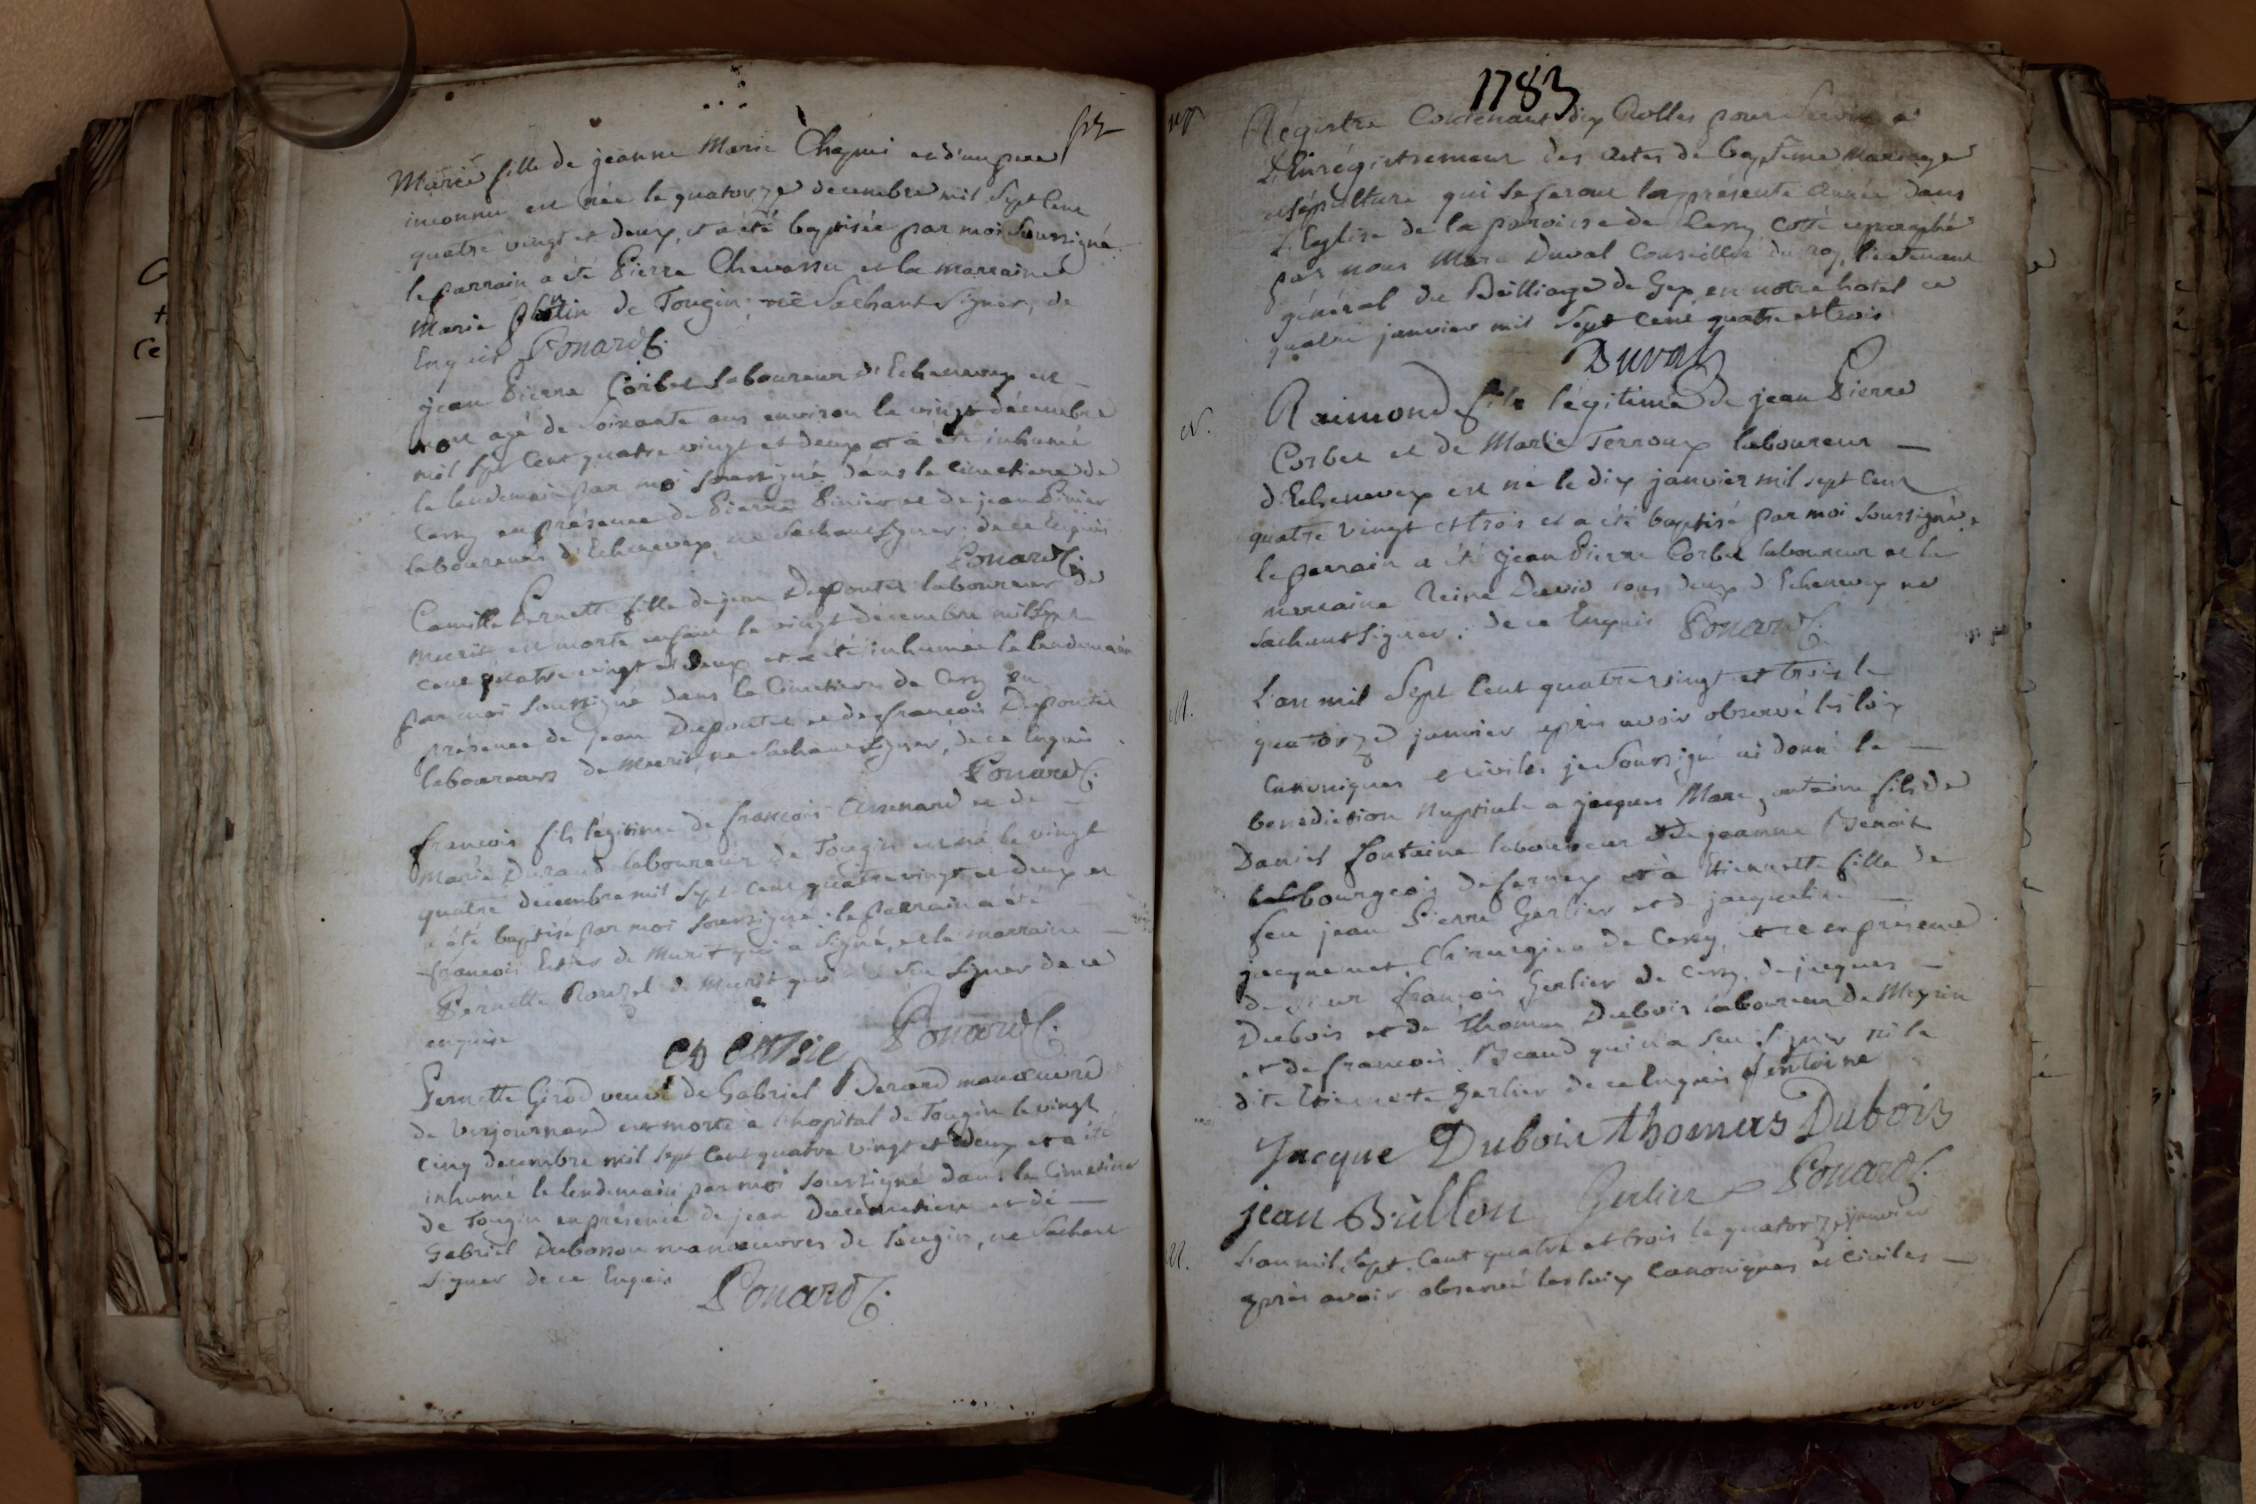 Marie fille de jeanne Marie Chapuis et d'un pere
inconnu est née le quatorze decembre mil sept cent
quatre vingt et deux, et a été baptisée par moi soussigné
le parrain a été Pierre Chavassu et la marraine
Marie de Tougin, ne sachant signer, de
Enquis Ponard C.
jean Pierre Corbet laboureur d'Echenevex est
mort agé de soixante ans environ le vingt décembre
mil sept cent quatre vingt et deux et a été inhumé
le lendemain par moi soussigné dans le cimetiere de
Cessy en présence de Pierre Pinier et de jean Pinier
laboureurs d'Echenevex, ne sachant signer. de ce Enquis
Ponard C.
Camille Pernette fille de jean Depontet laboureur de
Murit est morte enfant le vingt décembre mil sept
cent quatre vingt et deux et a été inhumée le lendemain
par moi soussigné dans le cimetiere de Cessy en
présence de jean Depontet et de françois Depontet
laboureurs de Murit, ne sachant signer, de ce Enquis
Ponard C.
françois fils légitime de françois et de
Marie Durand laboureur de Tougin est né le vingt
quatre decembre mil sept cent quatre vingt et deux et
a été baptisé par moi soussigné. le parrain a été
françois de Murit qui a signé, et la marraine
Pernette de Murit qui n'a seu signer de ce
enquise
Ponard C.
Pernette Girod veuve de Gabriel Berard manoeuvre
de Versonnand est morte a l'hopital de Tougin le vingt
cinq decembre mil sept cent quatre vingt et deux et a été
inhumé le lendemain par moi soussigné dans le cimetiere
de Tougin en présence de jean et de
Gabriel manoeuvres de Tougin, ne sachant
signer de ce Enquis Ponard C.
1783
Régistre Contenant dix Rolles pour servir a
L'Enrégistrement des actes de baptême mariage
et sépulture qui se feront la présente année dans
L'Eglise de la paroisse de Cessy cotté et paraphé
par nous Marc Duval Conseiller du roy, lieutenant
général du Bailliage de Gex en notre hotel ce
quatre janvier mil sept cent quatre et trois
Duval
Raimond fils légitime de jean Pierre
Corbet et de Marie Terroux laboureur
d'Echenevex est né le dix janvier mil sept cent
quatre vingt et trois et a été baptisé par moi soussigné,
le parrain a été jean Pierre Corbet laboureur et la
marraine Reine David tous deux d'Echenevex ne
sachant signer. de ce Enquis Ponard C.
L'an mil sept cent quatre vingt et trois le
quatorze janvier après avoir observé les loix
canoniques et civiles je soussigné ai donné la
benediction nuptiale a jacques Marc fontaine fils de
Daniel fontaine laboureur et de jeanne Benoit
bourgeois de ferney et à Etiennette fille de
feu jean Pierre Gerlier et de jacqueline
jacquemet, Chirurgien de Cessy, et ce en présence
de sieur françois Gerlier de Cessy, de jacques
Dubois et de Thomas Dubois laboureur de Meyrin
et de françois Beaud qui n'a seu signer ni la
dite Etiennette Gerlier de ce Enquis fontaine
Jacque Dubois thomas Dubois
jean Bullon Gerlier Ponard C.
L'an mil sept cent quatre et trois le quatorze janvier
après avoir observé les loix canoniques et civiles